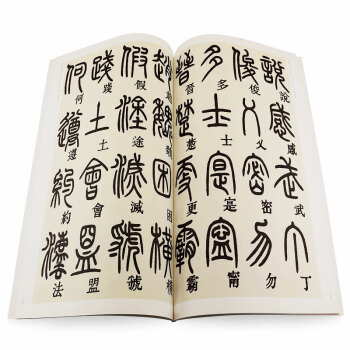 說感武丁
俊乂密勿
多士寔甯
晉楚更霸
趙魏困橫
假途滅虢
踐土會盟
何遵約法